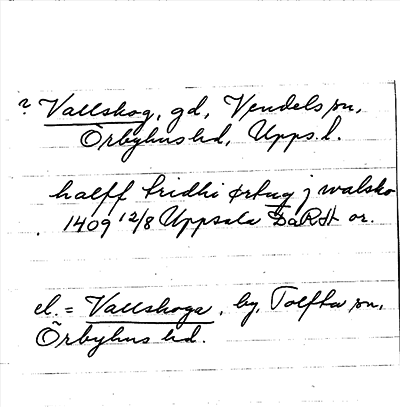 ? Vallskog, gd, Vendels sn,
Örbyhus hd, Upps. l.
halff þridhi ørtug j walsko
1409 12/8 Uppsala DaRSt or.
el. = Vallskoga, by, Tolfta sn,
Örbyhus hd.